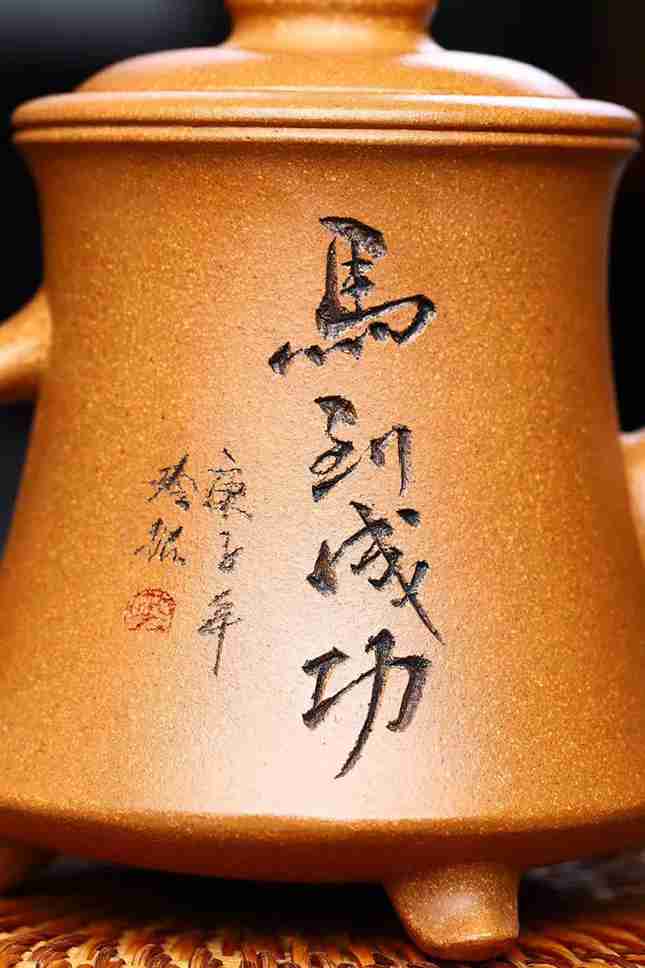 馬到成功
庚子年